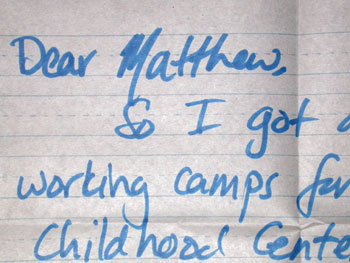 Dear Matthew,
So I got a
working camps for
Childhood Cente